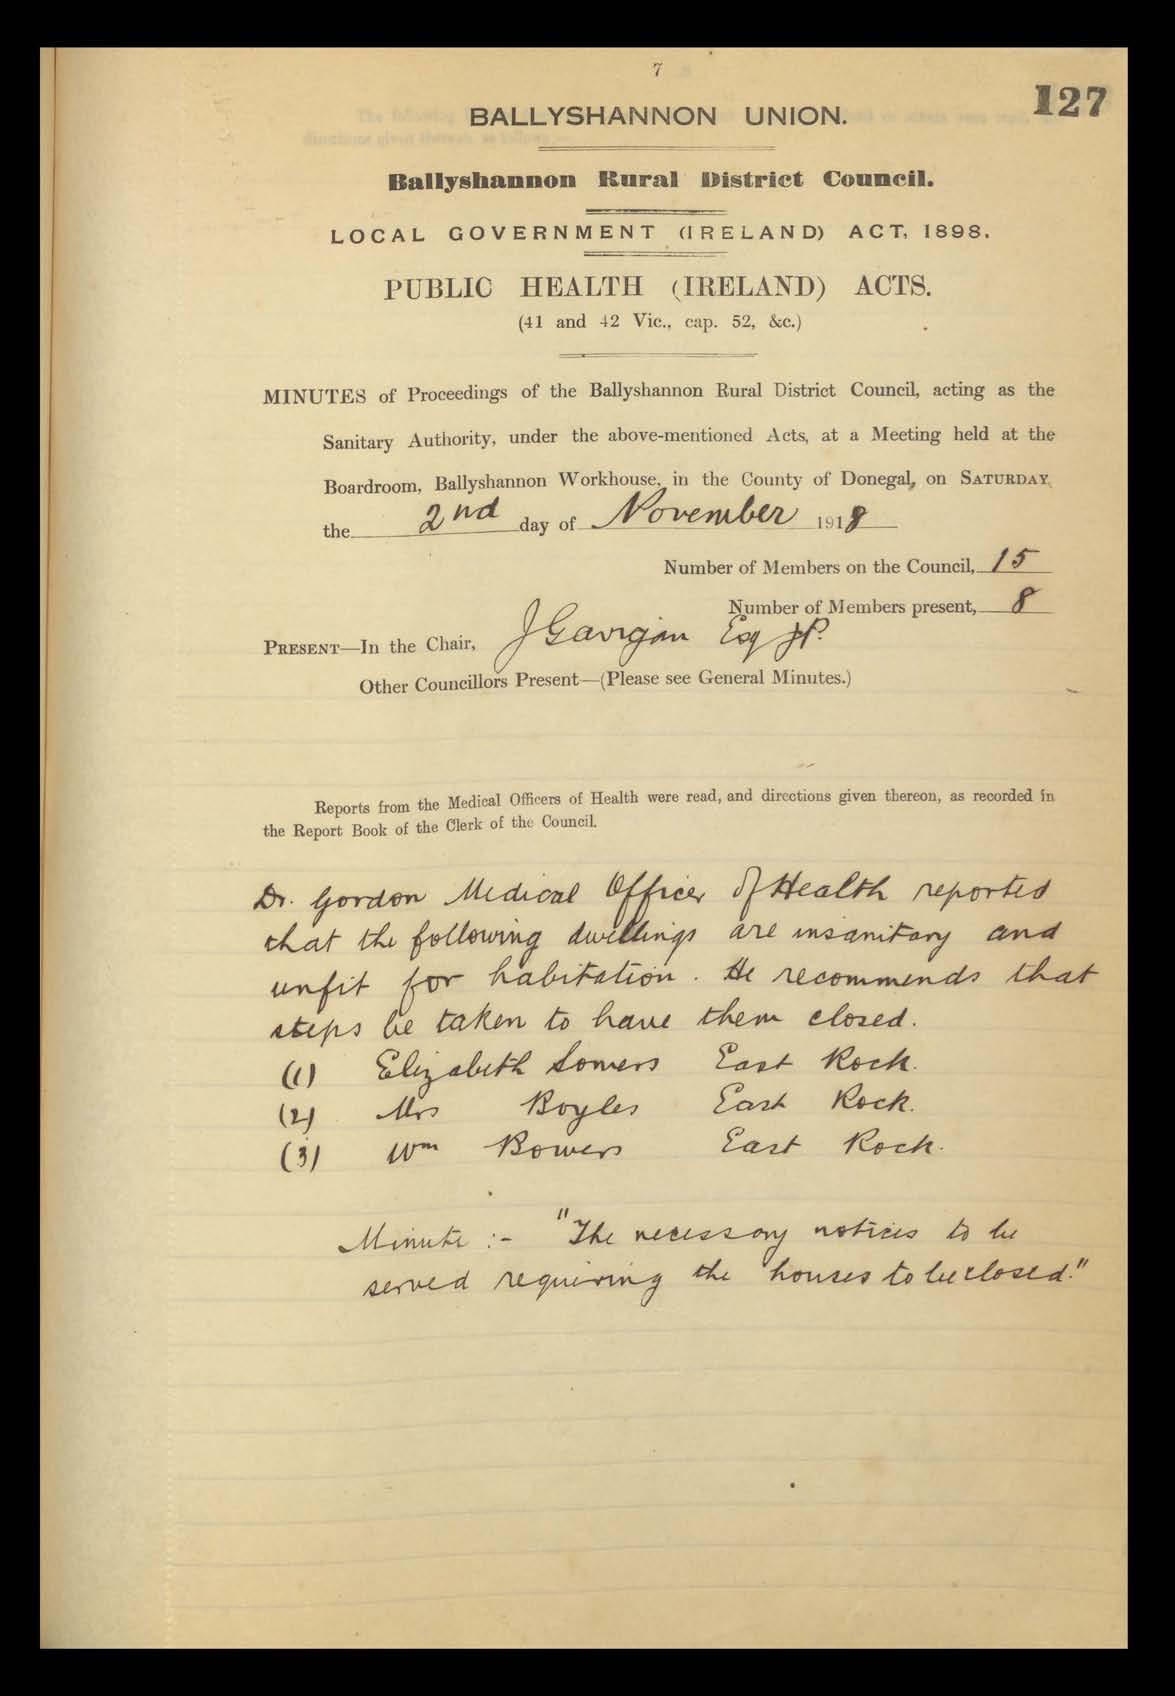 7
127
BALLYSHANNON UNION.
Ballyshannon Rural District Council.
LOCAL GOVERNMENT (IRELAND) ACT, 1898.
PUBLIC HEALTH (IRELAND) ACTS.
(41 and 42 Vic., cap. 52, &c.)
MINUTES of Proceedings of the Ballyshannon Rural District Council, acting as the
Sanitary Authority, under the above-mentioned Acts, at a Meeting held at the
Boardroom, Ballyshannon Workhouse, in the County of Donegal, on SATURDAY,
the 2nd day of November 1918
Number of Members on the Council, 15
Number of Members present, 8
PRESENT—In the Chair, J Gavigan Esq JP.
Other Councillors Present—(Please see General Minutes.)
Reports from the Medical Officers of Health were read, and directions given thereon, as recorded in
the Report Book of the Clerk of the Council.
Dr. Gordon Medical Officer of Health reported
that the following dwellings are insanitary and
unfit for habitation. He recommends that
steps be taken to have them closed.
(1) Elizabeth Somers East Rock.
(2) Mrs Boyles East Rock.
(3) Wm Bowers East Rock.
Minute :- "The necessary notices to be
served requiring the houses to be closed."